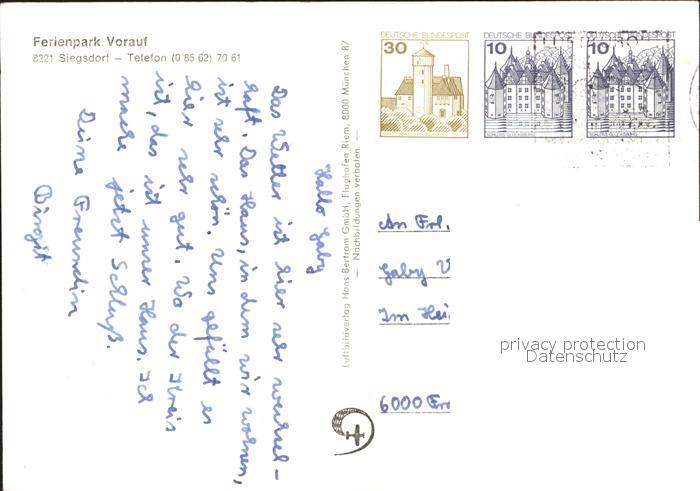 Ferienpark Vorauf
8221 Siegsdorf – Telefon (0 86 62) 70 61
Hallo Gaby
Das Wetter ist hier sehr wechsel-
haft. Das Haus, in dem wir wohnen,
ist sehr schön. Uns gefällt es
hier sehr gut. Wo der Kreis
ist, das ist unser Haus. Ich
mache jetzt Schluß.
Deine Freundin
Birgit
Luftbildverlag Hans Bertram GmbH, Flughafen Riem, 8000 München 87
— Nachbildungen verboten —
DEUTSCHE BUNDESPOST
30
DEUTSCHE BUNDESPOST
10
SCHLOSS GLÜCKSBURG
DEUTSCHE BUNDESPOST
10
SCHLOSS GLÜCKSBURG
An Frl.
Gaby
Im Hei
6000 Fr
privacy protection
Datenschutz